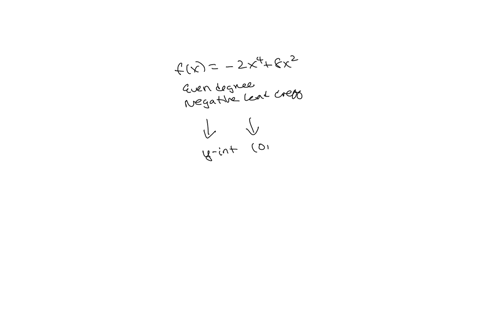 f(x) = -2x⁴ + 8x²
Even degree
Negative lead coeff
↓ ↓
y-int (0,